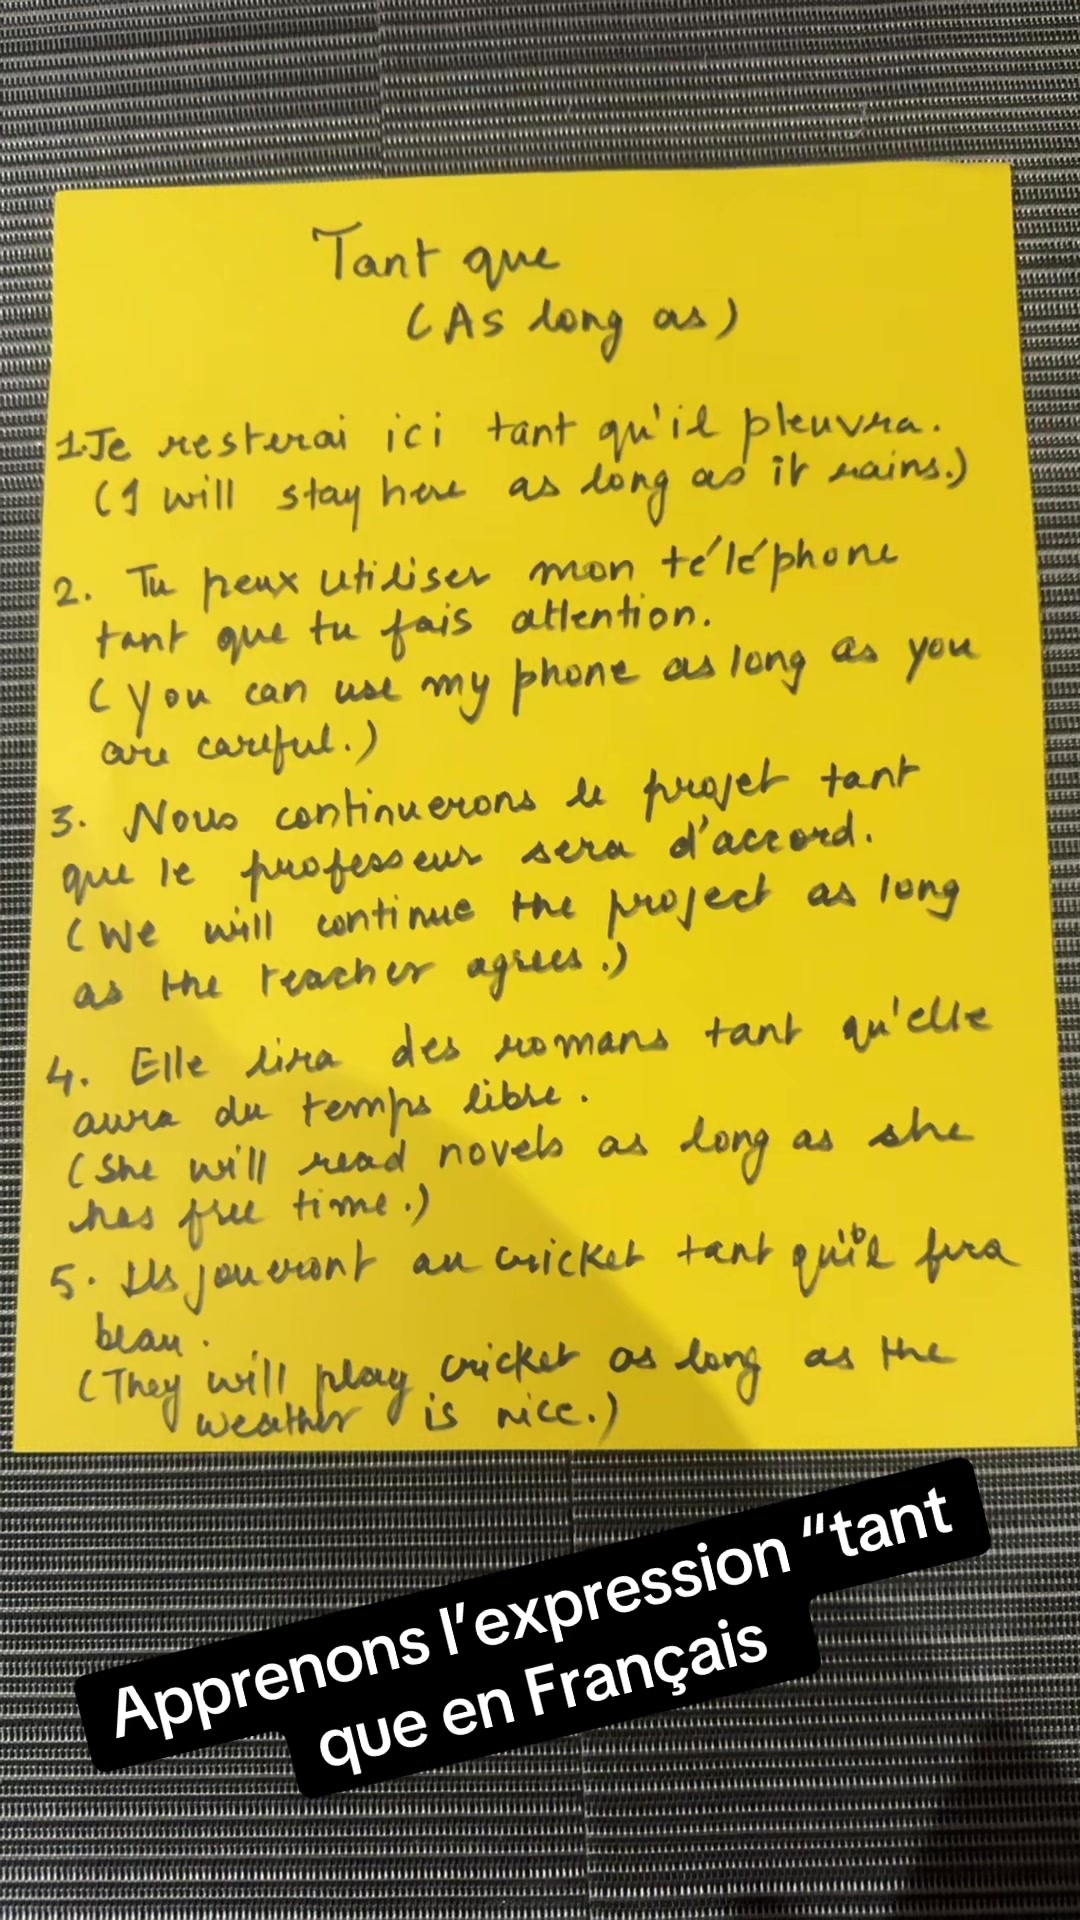 Tant que
(As long as)
1. Je resterai ici tant qu'il pleuvra.
(I will stay here as long as it rains.)
2. Tu peux utiliser mon téléphone
tant que tu fais attention.
(You can use my phone as long as you
are careful.)
3. Nous continuerons le projet tant
que le professeur sera d'accord.
(We will continue the project as long
as the teacher agrees.)
4. Elle lira des romans tant qu'elle
aura du temps libre.
(She will read novels as long as she
has free time.)
5. Ils joueront au cricket tant qu'il fera
beau.
(They will play cricket as long as the
weather is nice.)
Apprenons l'expression "tant
que en Français